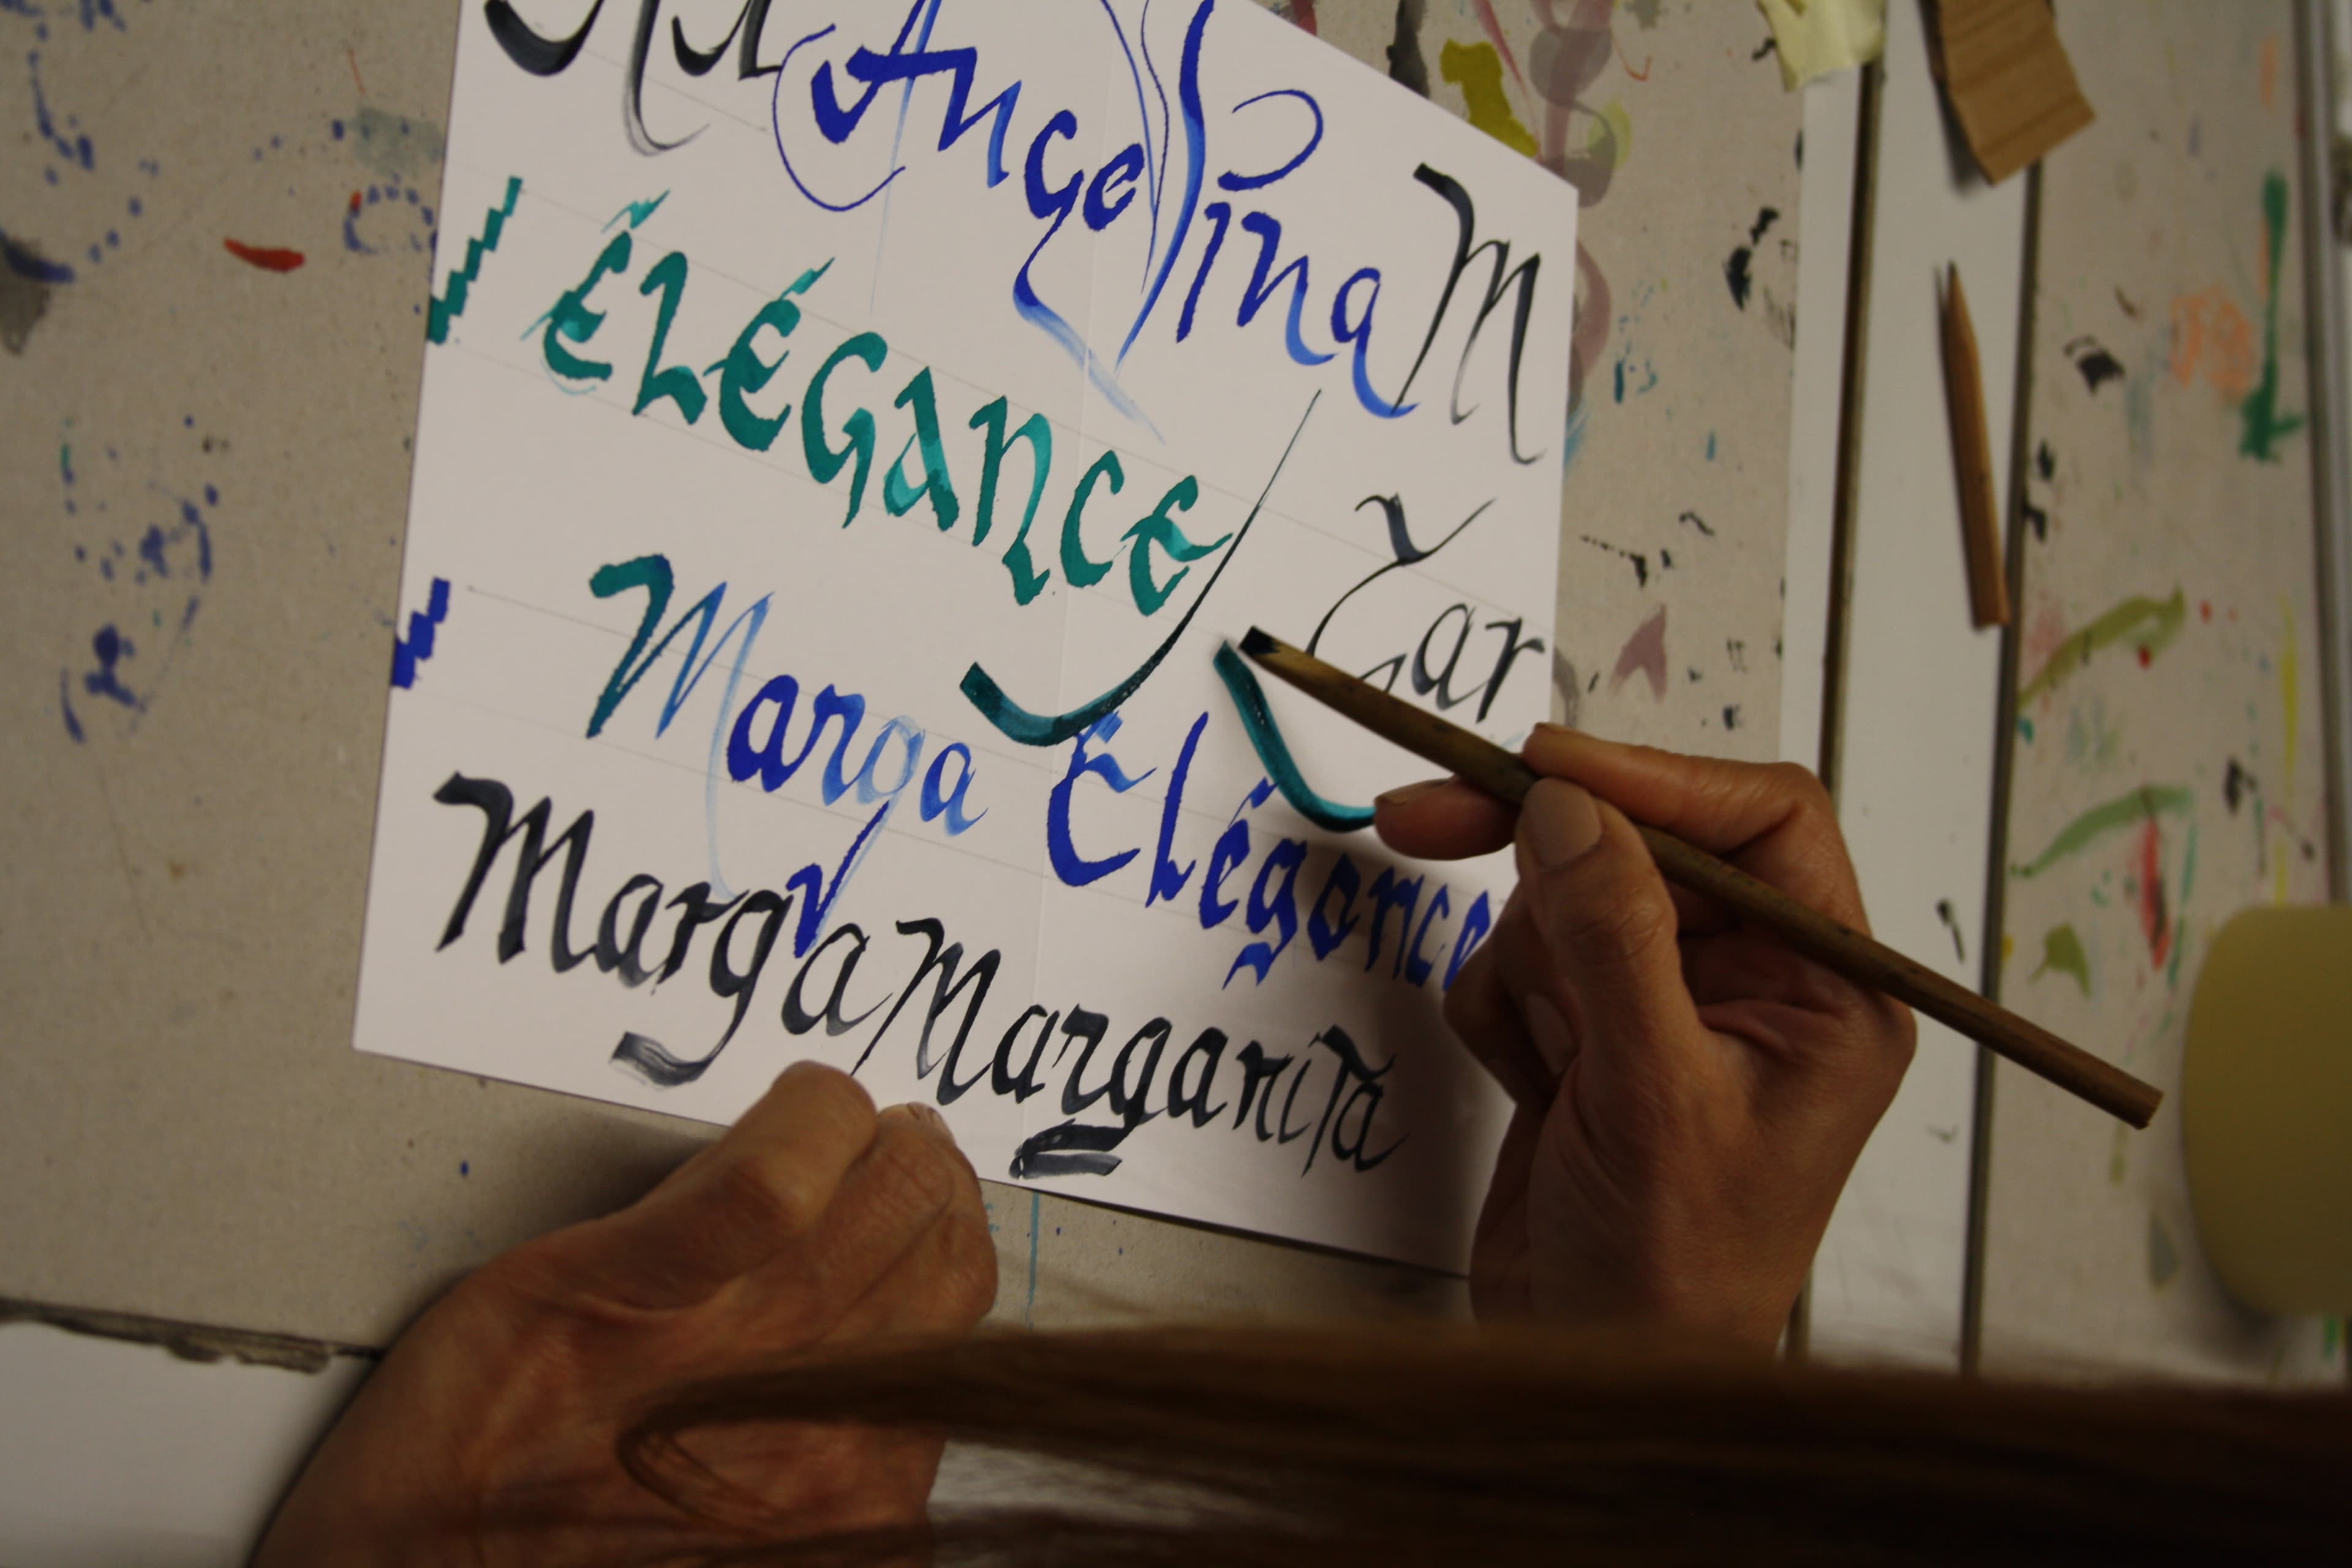 Angelina M
ÉLÉGANCE
Mar
Marga Elégance
Marga Margarita